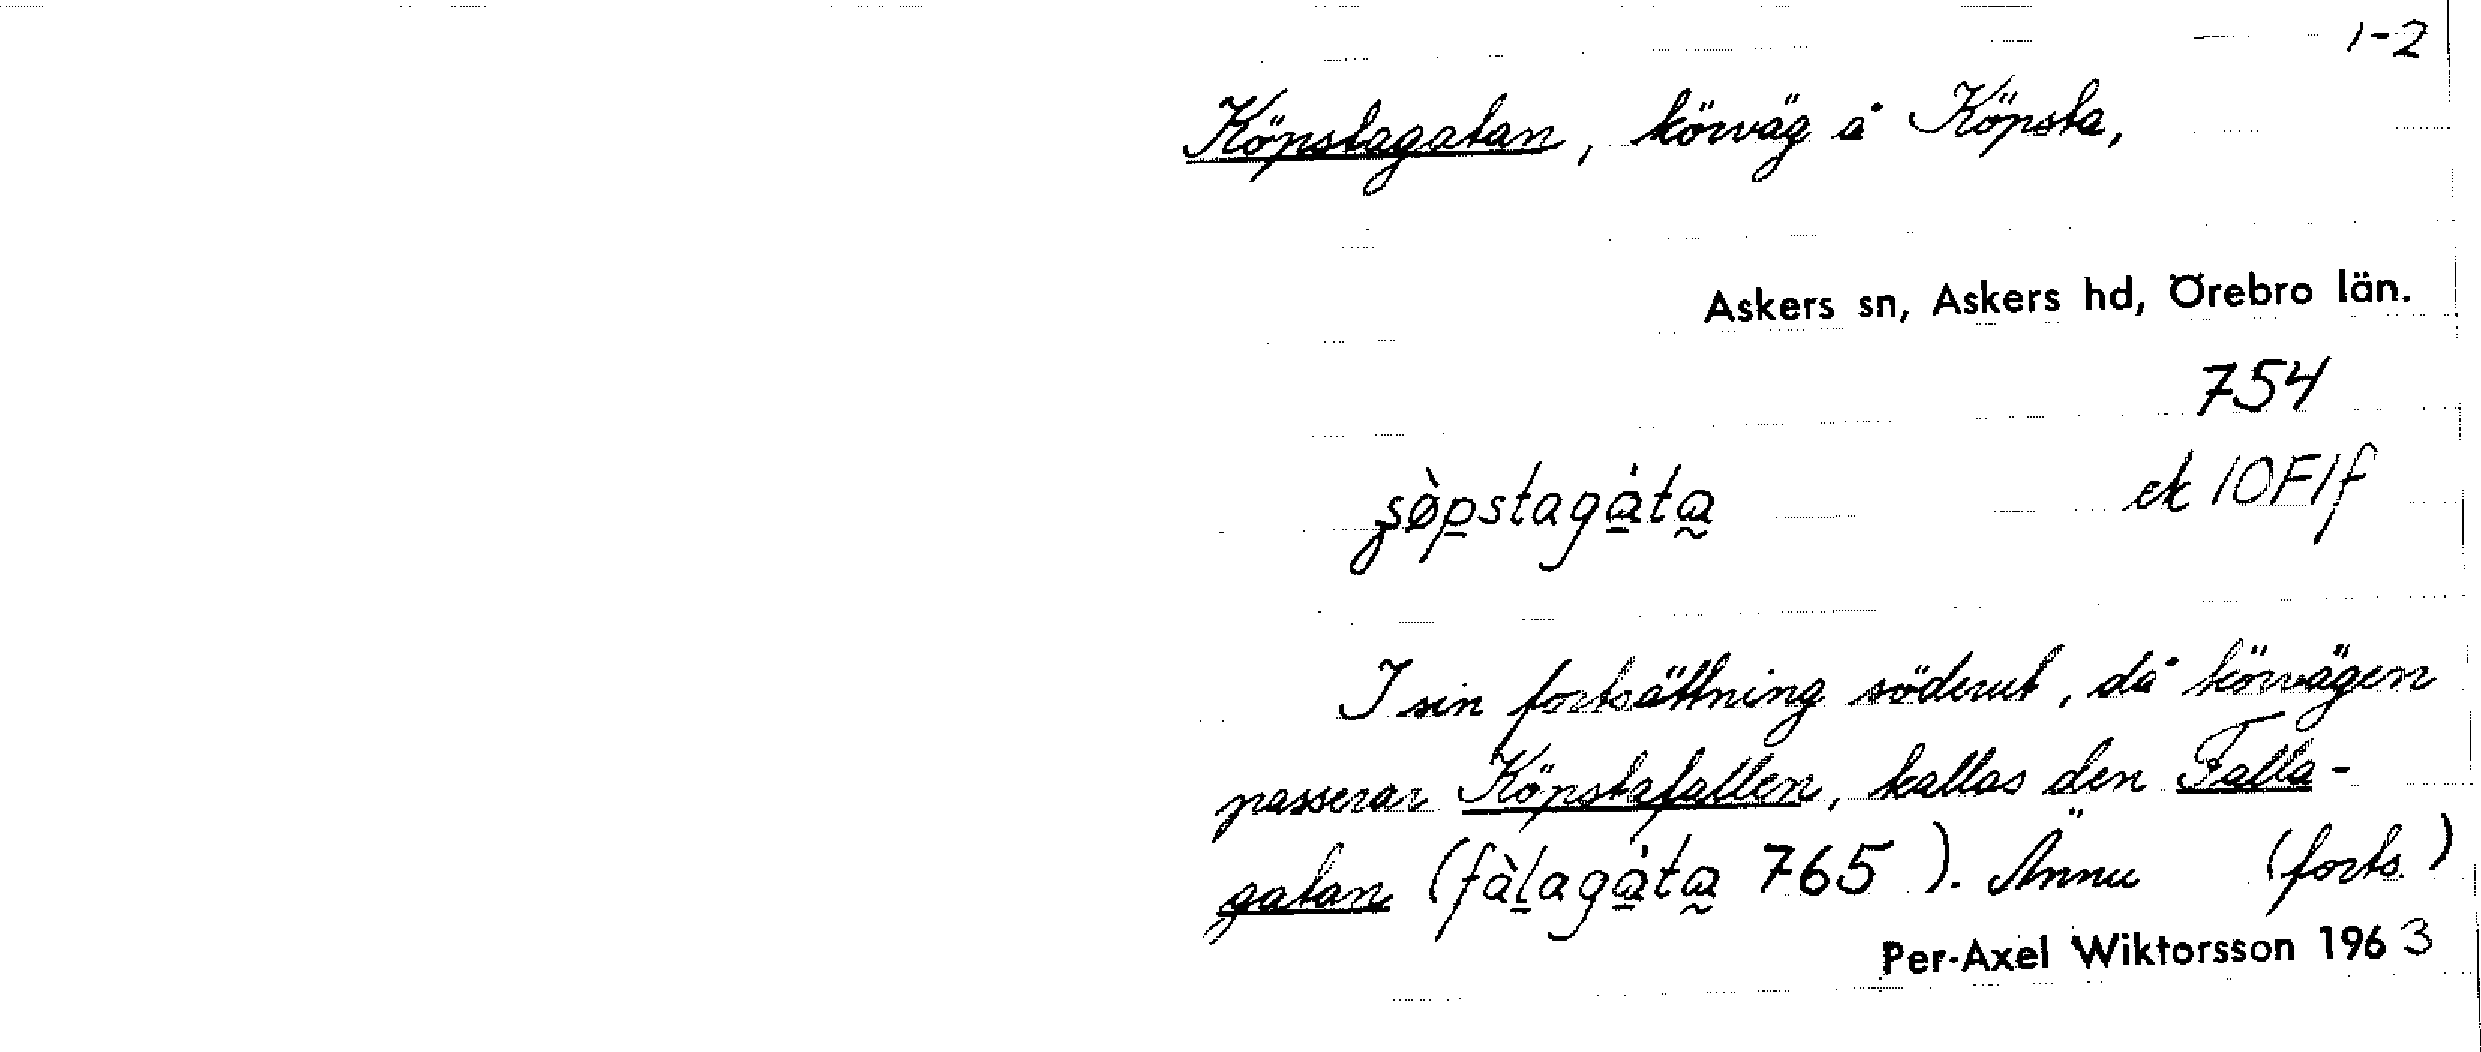 1-2
Köpstagatan, körväg å Köpsta,
Askers sn, Askers hd, Örebro län.
754
ek 10F1f
şø̀p̲stagá̲ta̰
I sin fortsättning söderut, då körvägen
passerar Köpstafallen, kallas den Falla-
gatan (fàl̲agá̲ta̰ 765 ). Ännu (forts.)
Per-Axel Wiktorsson 1963